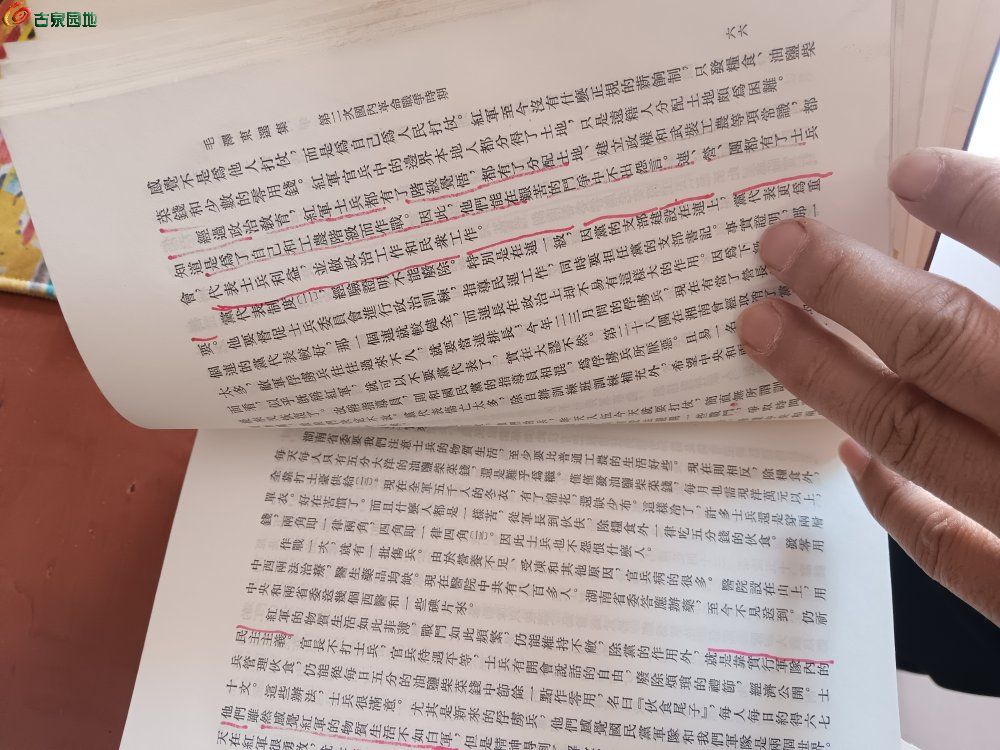 六六
毛澤東選集 第二次國內革命戰爭時期
感覺不是為他人打仗,而是為自己為人民打仗。紅軍至今沒有什麼正規的薪餉制,只發糧食、油鹽柴
菜錢和少數的零用錢。紅軍官兵中的邊界本地人都分得了土地,只是遠籍人分配土地頗為困難。
經過政治教育,紅軍士兵都有了階級覺悟,都有了分配土地、建立政權和武裝工農等項常識,都
知道是為了自己和工農階級而作戰。因此,他們能在艱苦的鬥爭中不出怨言。連、營、團都有了士兵
會,代表士兵利益,並做政治工作和民衆工作。
黨代表制度,經驗證明不能廢除。特別是在連一級,因黨的支部建設在連上,黨代表更為重
要。他要督促士兵委員會進行政治訓練,指導民運工作,同時要担任黨的支部書記。事實證明,哪一
個連的黨代表較好,那一個連就較健全,而連長在政治上却不易有這樣大的作用。因為下
太多,敵軍俘虜兵往往過來不久,就要當連排長,今年二三月間的俘虜兵,現在有當了營長
面看,似乎既稱紅軍,就可以不要黨代表了,實在大謬不然。第二十八團在湘南曾經取消了黨
改稱指導員,則和國民黨的指導員相混,為俘虜兵所厭惡。且易一名
除自辦訓練班訓練補充外,希望中央
湖南省委要我們注意士兵的物質生活,至少要比普通工農的生活好些。現在則相反,除糧食外,
每天每人只有五分大洋的油鹽柴菜錢,還是難乎為繼。僅僅發油鹽柴菜錢,每月也需現洋萬元以上,
全靠打土豪供給。現在全軍五千人的冬衣,有了棉花,還缺少布。這樣冷了,許多士兵還是穿兩層
單衣。好在苦慣了。而且什麼人都是一樣苦,從軍長到伙伕,除糧食外一律吃五分錢的伙食。發零用
錢,兩角即一律兩角,四角即一律四角。因此士兵也不怨恨什麼人。
作戰一次,就有一批傷兵。由於營養不足、受凍和其他原因,官兵病的很多。醫院設在山上,用
中西兩法治療,醫生藥品均缺。現在醫院中共有八百多人。湖南省委答應辦藥,至今不見送到。仍祈
中央和兩省委送幾個西醫和一些碘片來。
紅軍的物質生活如此菲薄,戰鬥如此頻繁,仍能維持不敝,除黨的作用外,就是靠實行軍隊內的
民主主義。官長不打士兵,官兵待遇平等,士兵有開會說話的自由,廢除煩瑣的禮節,經濟公開。士
兵管理伙食,仍能從每日五分的油鹽柴菜錢中節餘一點作零用,名曰『伙食尾子』,每人每日約得六七
十文。這些辦法,士兵很滿意。尤其是新來的俘虜兵,他們感覺國民黨軍隊和我們軍隊是兩個世
他們雖然感覺紅軍的物質生活不如白軍,但是精神
古泉园地